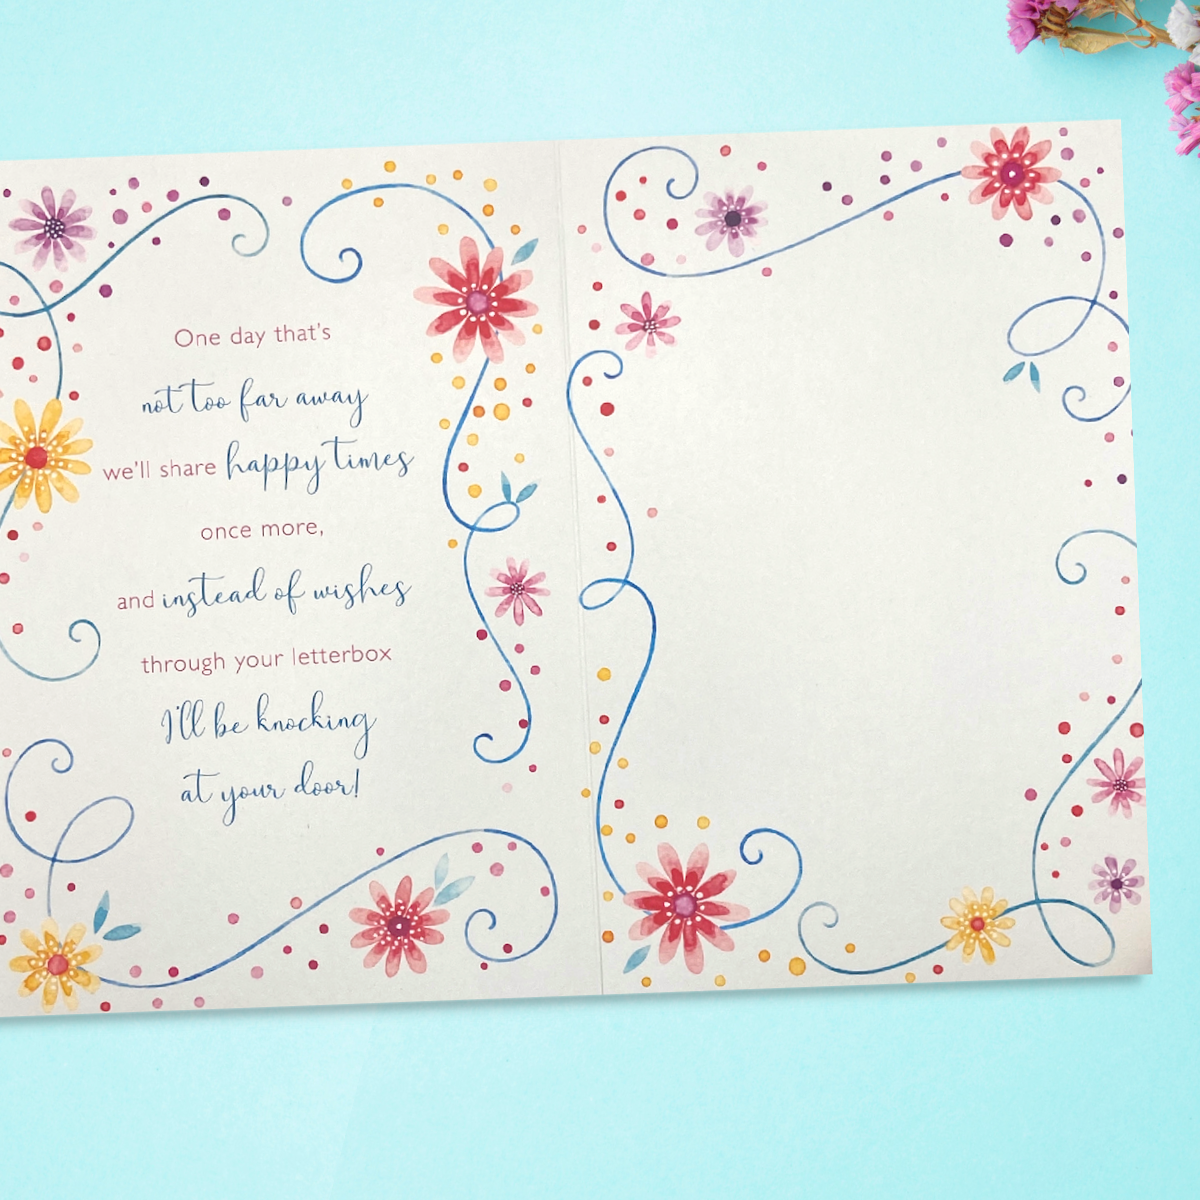 One day that's
not too far away
we'll share happy times
once more,
and instead of wishes
through your letterbox
I'll be knocking
at your door!